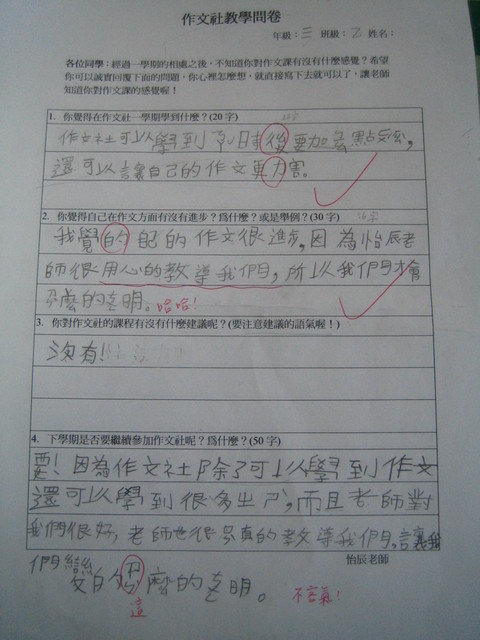 作文社教學問卷
年級：三 班級：乙 姓名：
各位同學：經過一學期的相處之後，不知道你對作文課有沒有什麼感覺？希望
你可以誠實回覆下面的問題，你心裡怎麼想，就直接寫下去就可以了，讓老師
知道你對作文課的感覺喔！
1. 你覺得在作文社一學期學到什麼？(20 字)
作文社可以學到 時後要加 點 ，
還可以讓自己的作文更力害。
2. 你覺得自己在作文方面有沒有進步？為什麼？或是舉例？(30 字)
我覺的自己的作文很進步，因為怡辰老
師很用心的教導我們，所以我們才會
麼的 明。哈哈！
3. 你對作文社的課程有沒有什麼建議呢？(要注意建議的語氣喔！)
沒有！
4. 下學期是否要繼續參加作文社呢？為什麼？(50 字)
要！因為作文社除了可以學到作文
還可以學到很多 ，而且老師對
我們很好，老師也很 真的教導我們，讓我
怡辰老師
們變的 麼的 明。
這
不客氣！